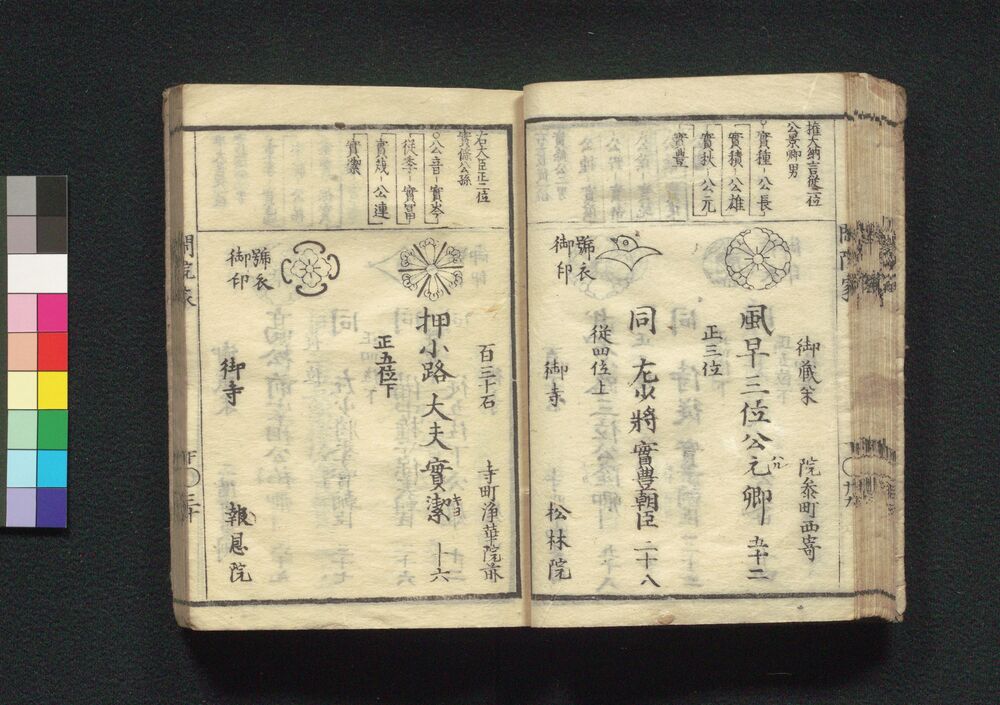 権大納言従二位
公景卿男
實種-公長
實積-公雄
實秋-公元
實豊
御蔵米 院参町西寄
風早三位公元卿 五十二
正三位
號衣
御印
同 左少將實豊朝臣 二十八
従四位上
御寺 松林院
右大臣正二位
實條公孫
公音-實岑
従季-實富
實茂-公連
實潔
百三十石 寺町浄華院前
押小路大夫實潔 十六
キヨ
正五位下
號衣
御印
御寺 報恩院
閑院家